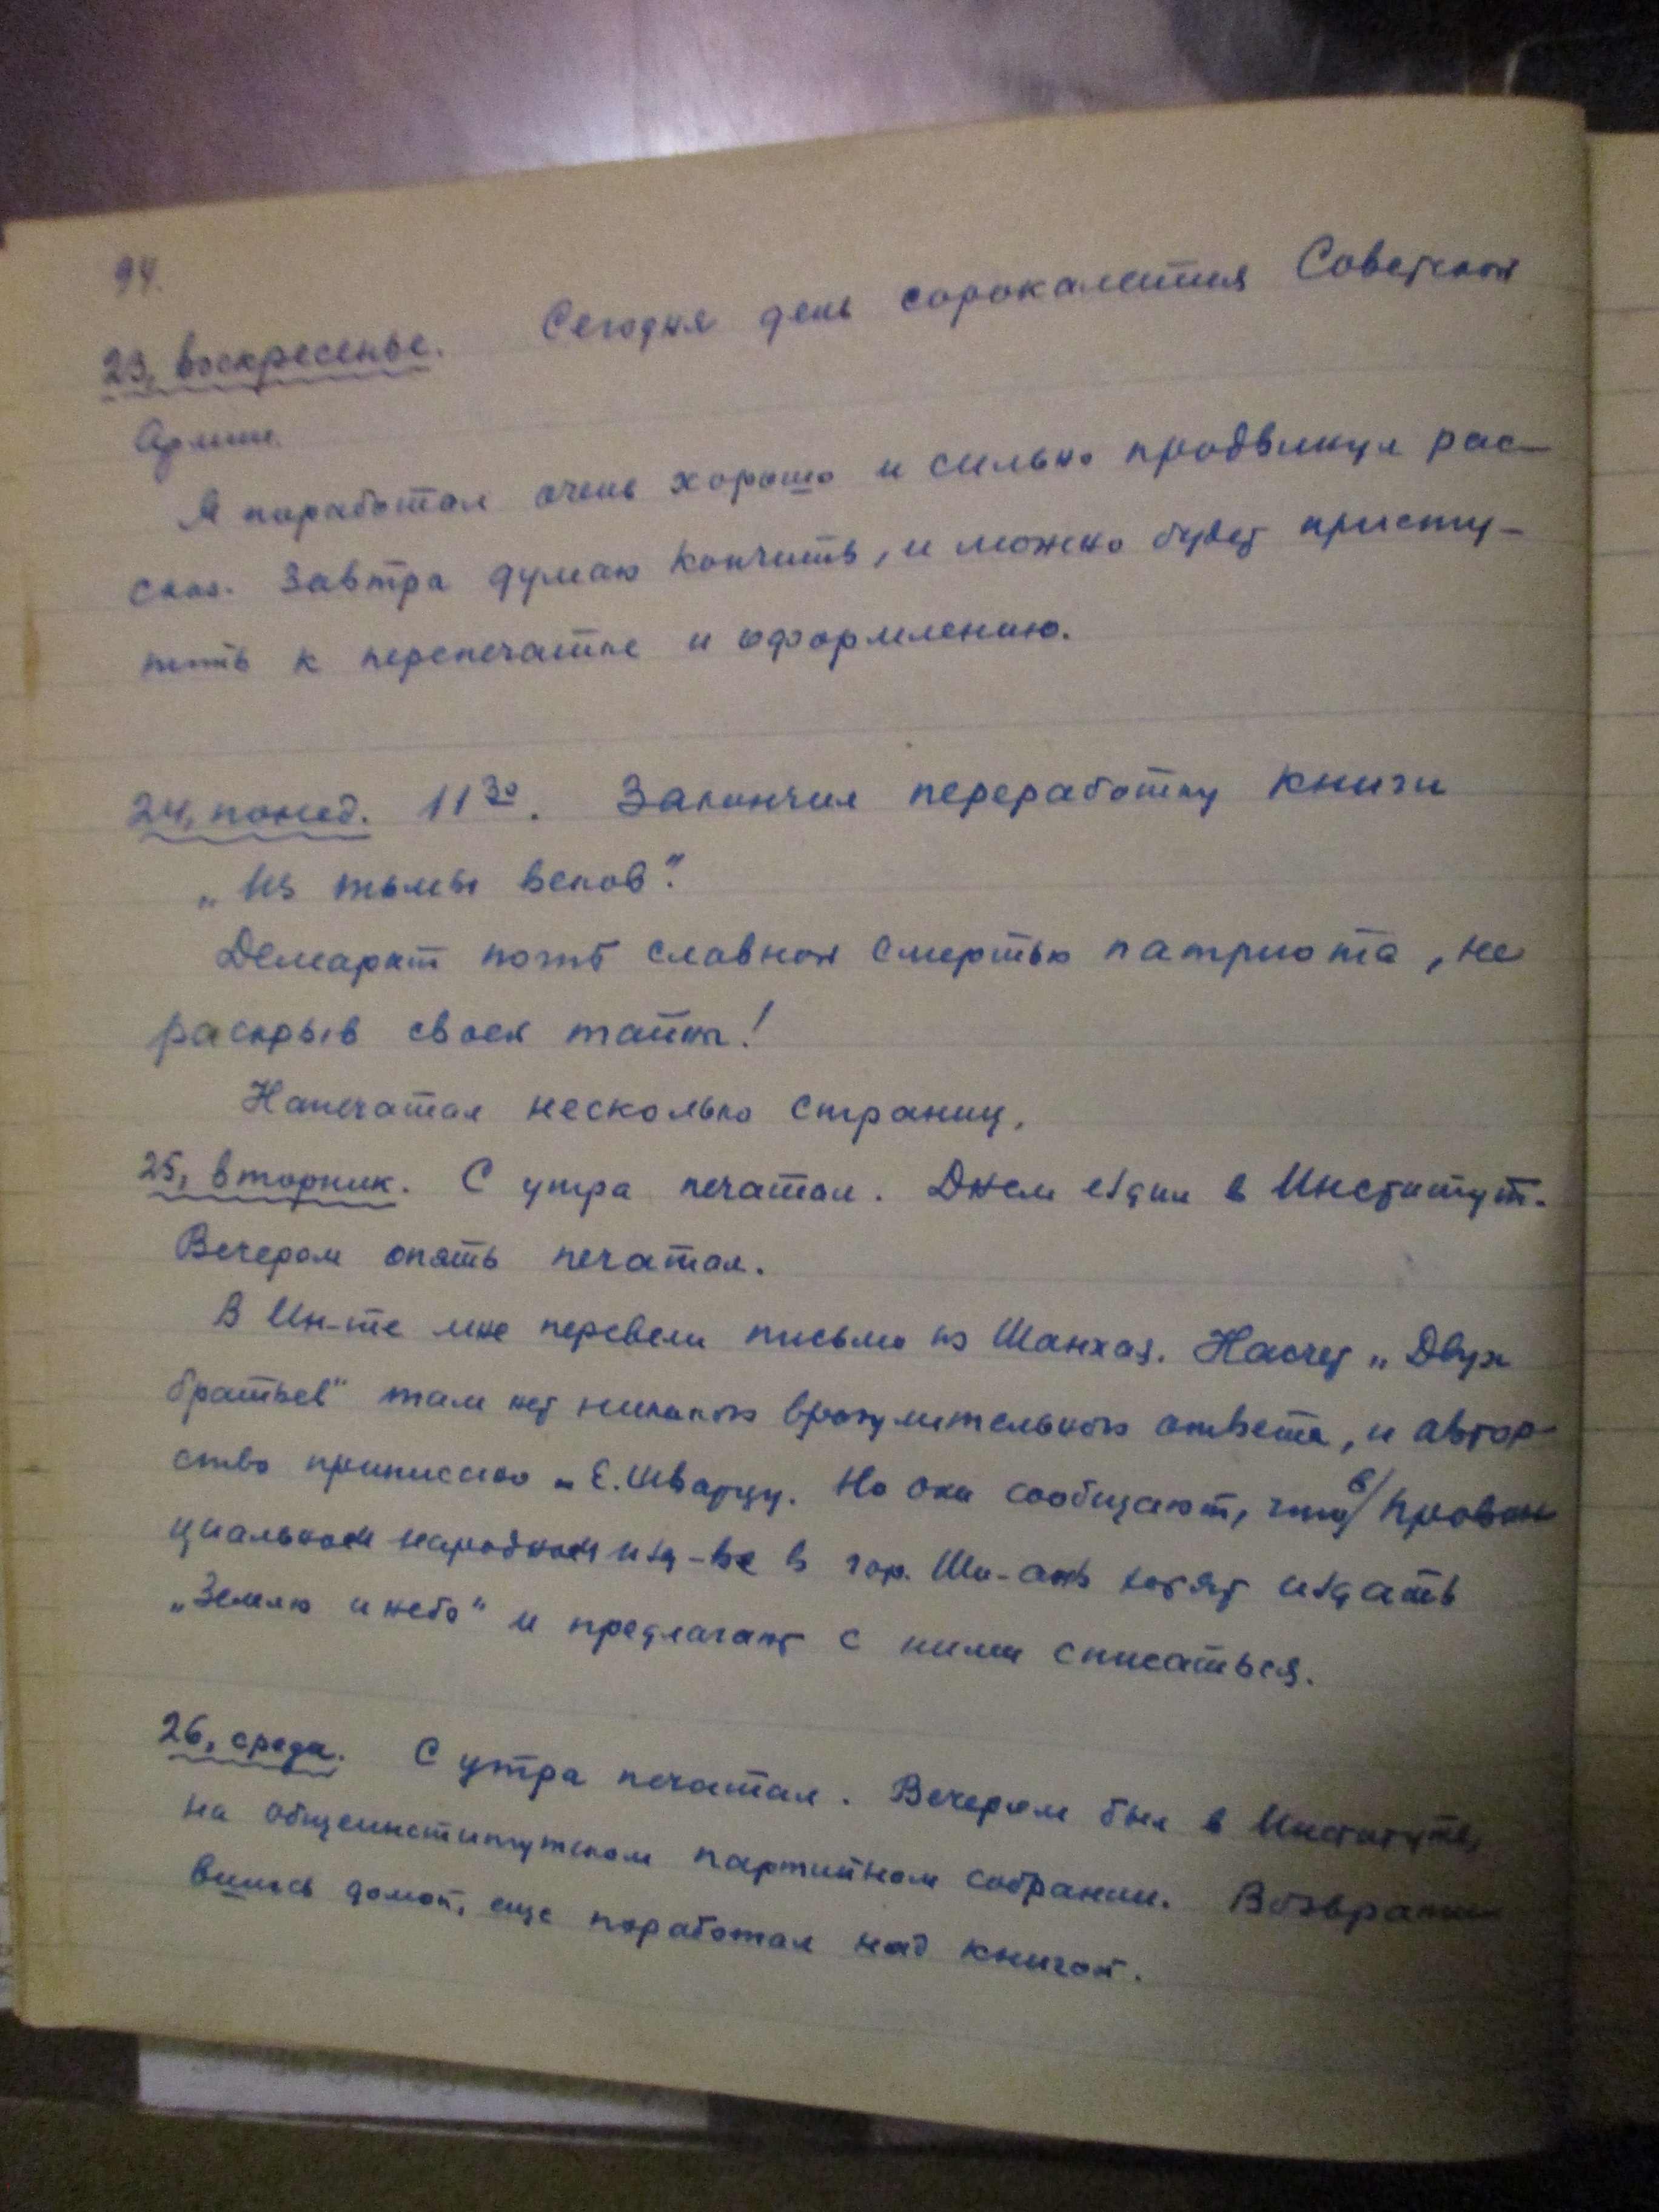 94.
23, воскресенье. Сегодня день сорокалетия Советской
Армии.
Я поработал очень хорошо и сильно продвинул рас-
сказ. Завтра думаю кончить, и можно будет присту-
пить к перепечатке и оформлению.
24, понед. 11 30. Закончил переработку книги
„Из тьмы веков".
Демарат погиб славной смертью патриота, не
раскрыв своей тайны!
Напечатал несколько страниц.
25, вторник. С утра печатал. Днем ездил в Институт.
Вечером опять печатал.
В Ин-те мне перевели письмо из Шанхая. Насчет „Двух
братьев" там нет никакого вразумительного ответа, и автор-
ство приписано Е. Шварцу. Но они сообщают, что в провин-
циальном народном изд-ве в гор. Ши-ань хотят издать
„Землю и небо" и предлагают с ними списаться.
26, среда. С утра печатал. Вечером был в Институте,
на общеинститутском партийном собрании. Возврати-
вшись домой, еще поработал над книгой.